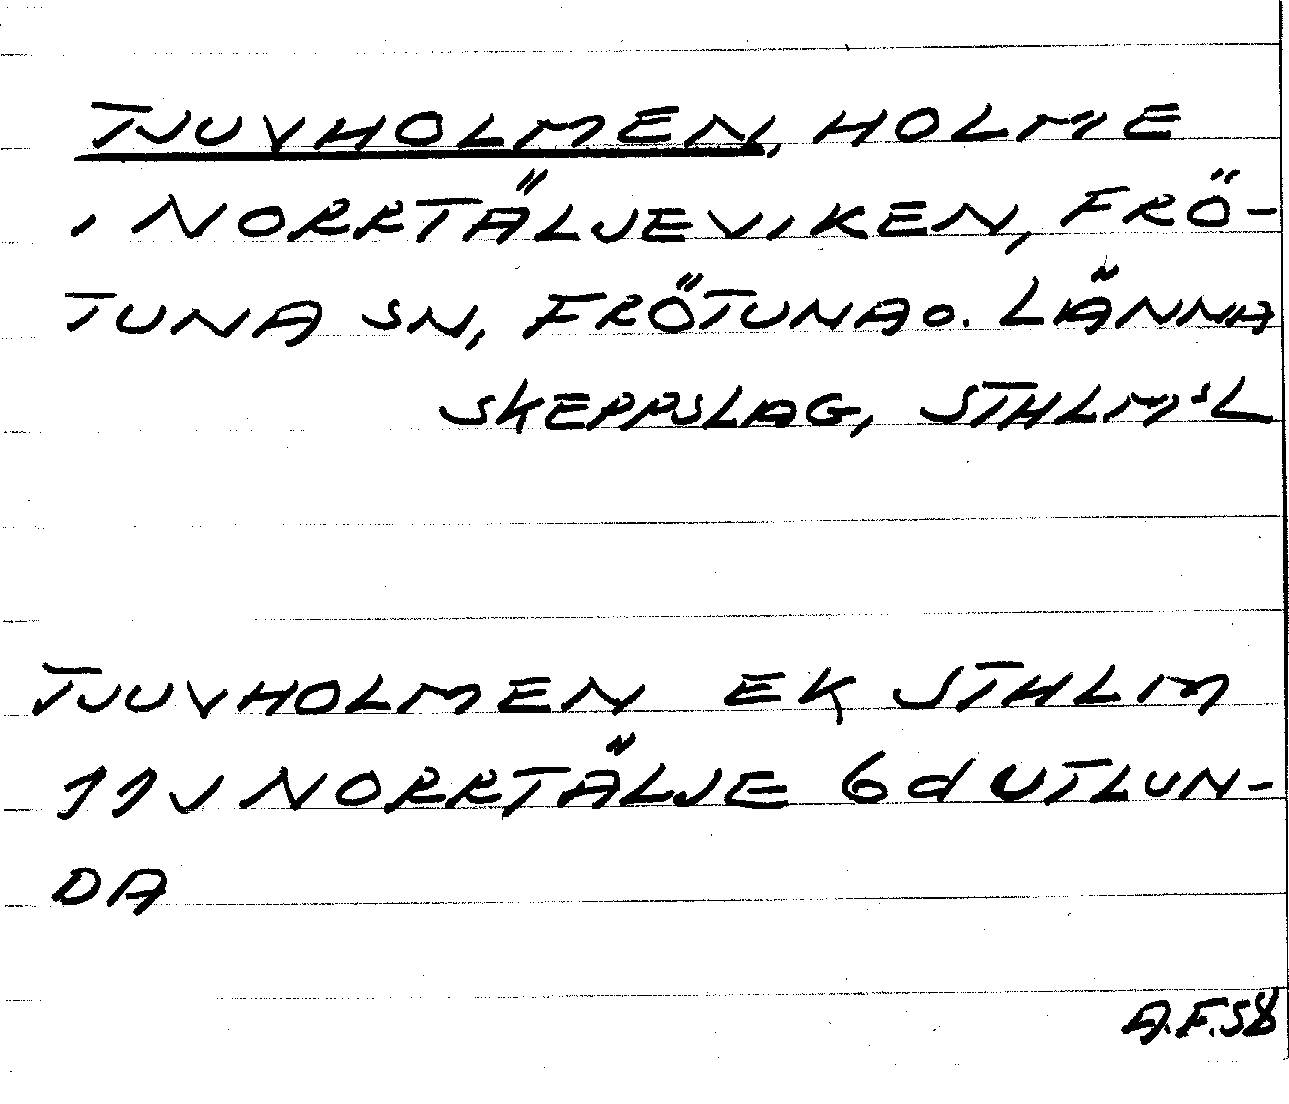 TJUVHOLMEN, HOLME
I NORRTÄLJEVIKEN, FRÖ-
TUNA SN, FRÖTUNA O. LÄNNA
SKEPPSLAG, STHLMSL
TJUVHOLMEN EK STHLM
11J NORRTÄLJE 6d UTLUN-
DA
A.F.58